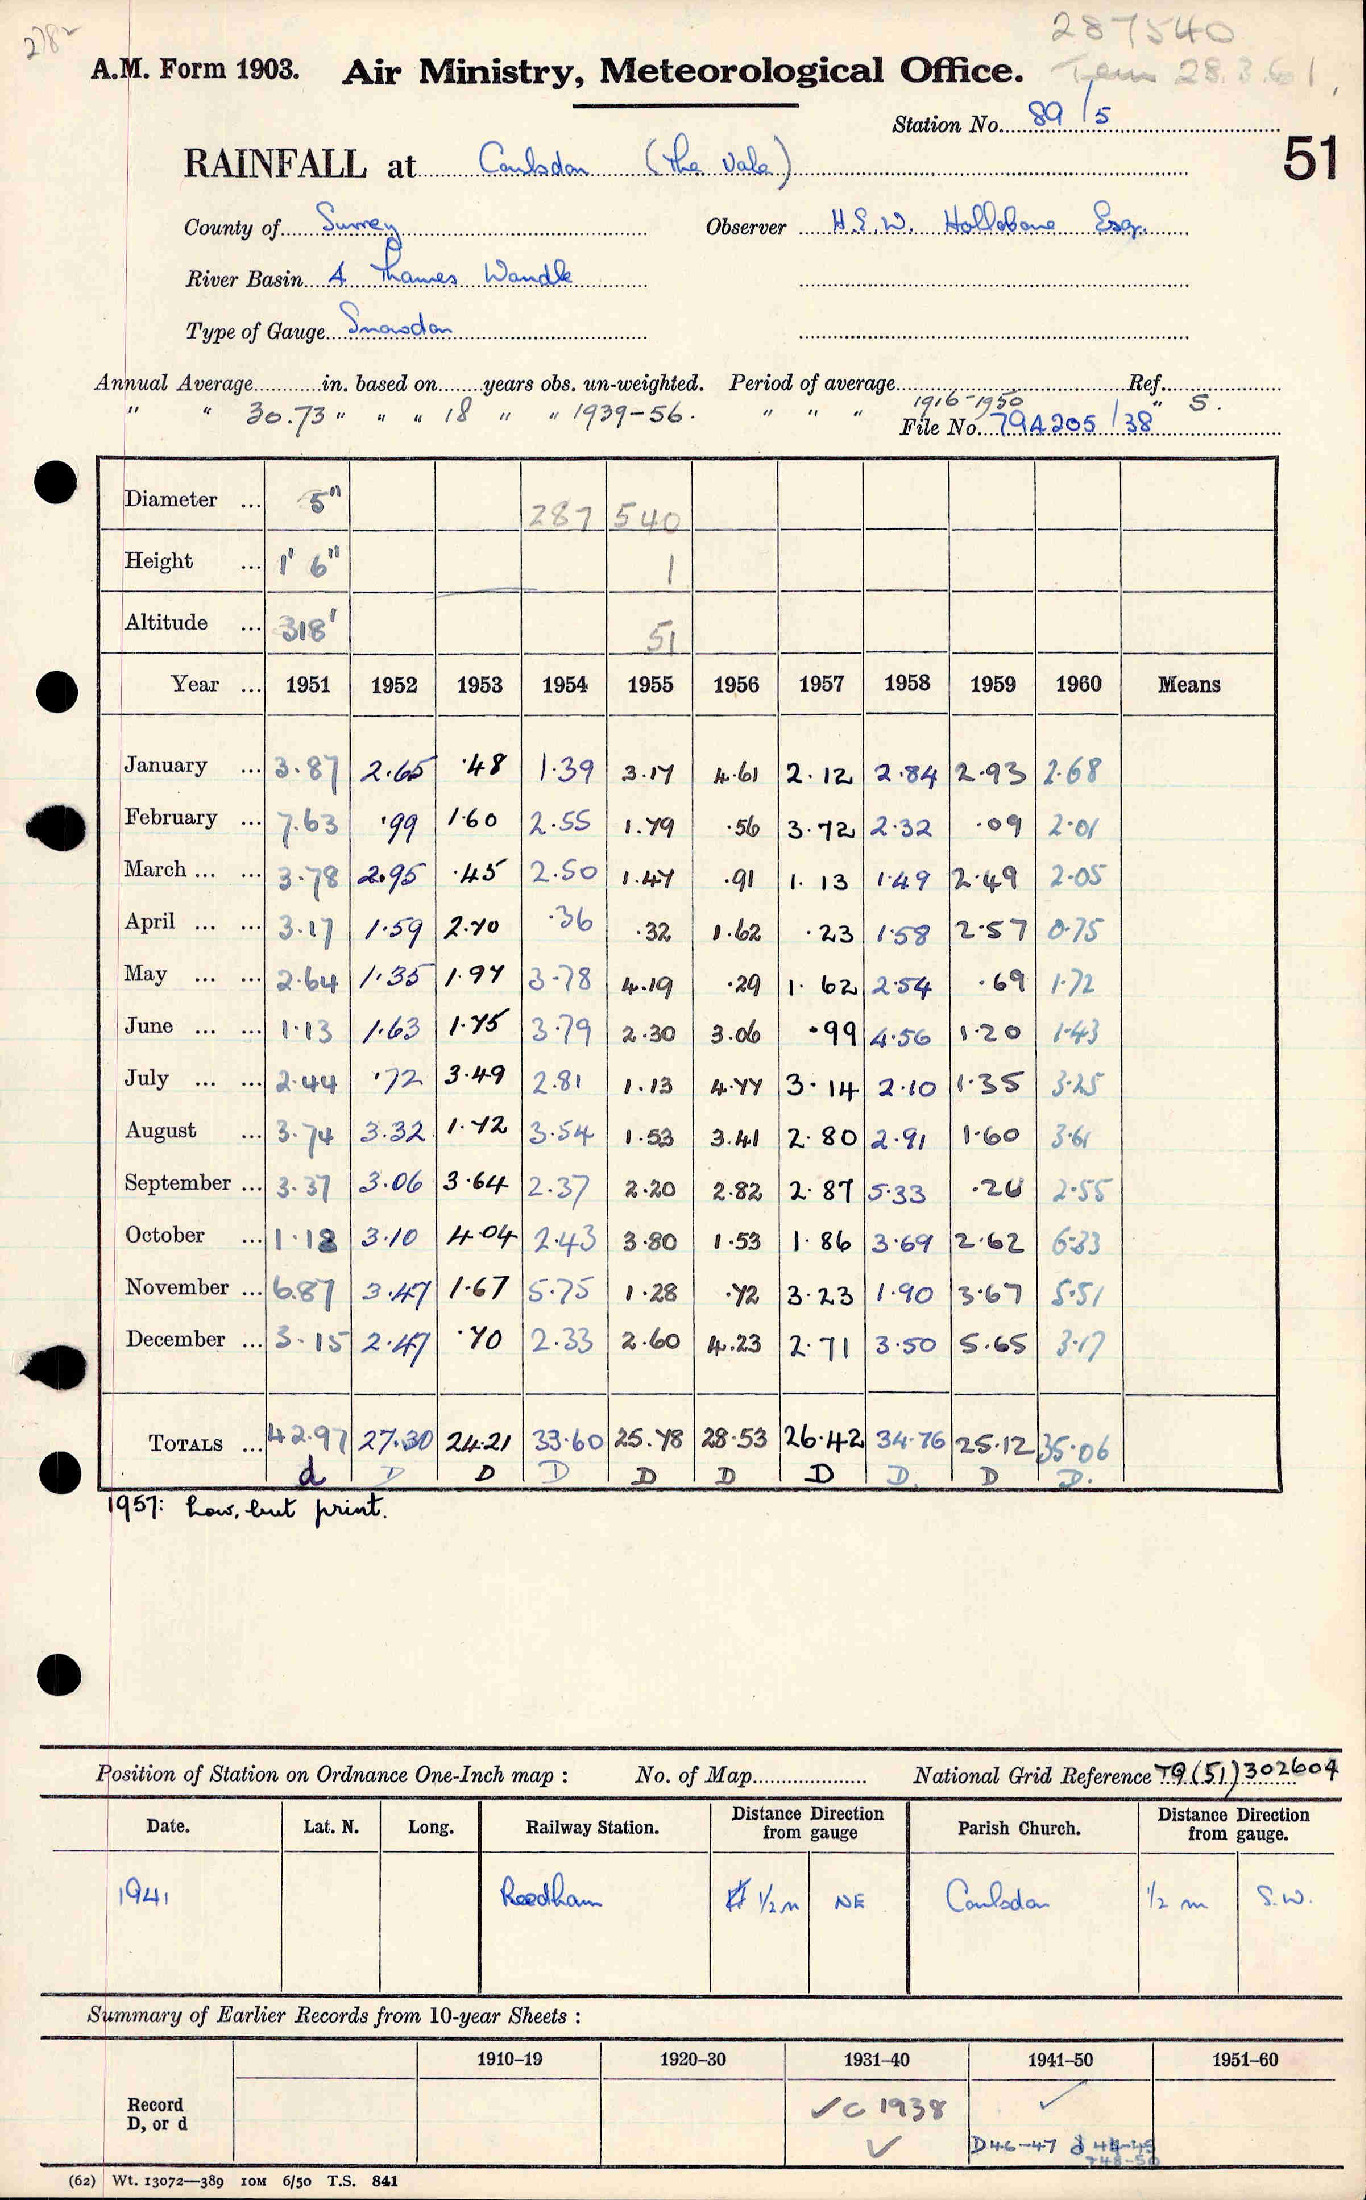 2782
287540
A.M. Form 1903. Air Ministry, Meteorological Office. Term 28.3.61.
Station No. 89/5
51
RAINFALL at Coulsdon (The Vale)
County of Surrey Observer H.E.W. Hollobone Esq.
River Basin 4 Thames Wandle
Type of Gauge Snowdon
Annual Average in. based on years obs. un-weighted. Period of average Ref.
" " 30.73 " " " 18 " " 1939-56. " " " 1916-1950 " 5.
File No. 79A205/38
Diameter ... 5" 287 540
Height ... 1' 6" 1
Altitude ... 318' 51
Year ... 1951 1952 1953 1954 1955 1956 1957 1958 1959 1960 Means
January ... 3.87 2.65 .48 1.39 3.17 4.61 2.12 2.84 2.93 2.68
February ... 7.63 .99 1.60 2.55 1.79 .56 3.72 2.32 .09 2.01
March ... ... 3.78 2.95 .45 2.50 1.47 .91 1.13 1.49 2.49 2.05
April ... ... 3.17 1.59 2.70 .36 .32 1.62 .23 1.58 2.57 0.75
May ... ... 2.64 1.35 1.97 3.78 4.19 .29 1.62 2.54 .69 1.72
June ... ... 1.13 1.63 1.75 3.79 2.30 3.06 .99 4.56 1.20 1.43
July ... ... 2.44 .72 3.49 2.81 1.13 4.77 3.14 2.10 1.35 3.25
August ... 3.74 3.32 1.72 3.54 1.53 3.41 2.80 2.91 1.60 3.61
September ... 3.37 3.06 3.64 2.37 2.20 2.82 2.87 5.33 .26 2.55
October ... 1.18 3.10 4.04 2.43 3.80 1.53 1.86 3.69 2.62 6.33
November ... 6.87 3.47 1.67 5.75 1.28 .72 3.23 1.90 3.67 5.51
December ... 3.15 2.47 .70 2.33 2.60 4.23 2.71 3.50 5.65 3.17
TOTALS ... 42.97 27.30 24.21 33.60 25.78 28.53 26.42 34.76 25.12 35.06
d D D D D D D D. D D.
1957: Low, but print.
Position of Station on Ordnance One-Inch map : No. of Map National Grid Reference TQ (51) 302604
Date. Lat. N. Long. Railway Station. Distance Direction from gauge Parish Church. Distance Direction from gauge.
1941 Reedham 1/2 m NE Coulsdon 1/2 m S.W.
Summary of Earlier Records from 10-year Sheets :
1910–19 1920–30 1931–40 1941–50 1951–60
Record D, or d ✓ C 1938 ✓
✓ D46-47 d 44-45
48-50
(62) Wt. 13072—389 10M 6/50 T.S. 841